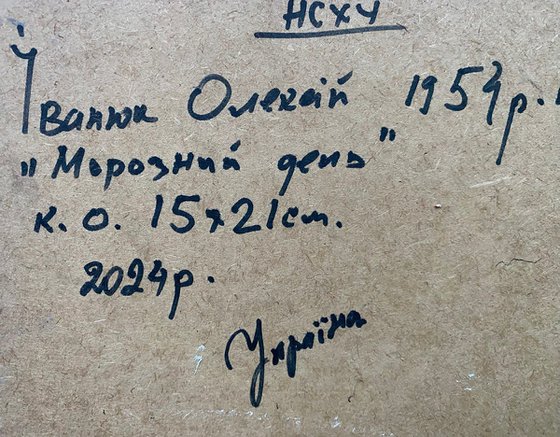 НСХУ
Іванюк Олексій 1954р.
"Морозний день"
к. о. 15х21см.
2024р.
Україна